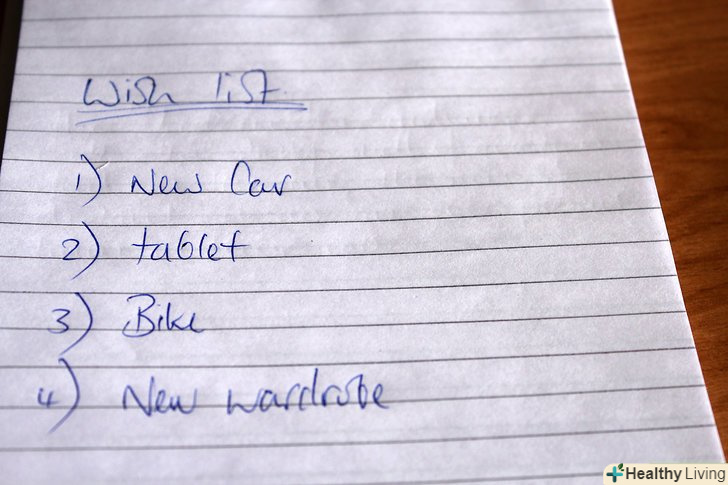 Wish list
1) New Car
2) tablet
3) Bike
4) New wardrobe
Healthy Living